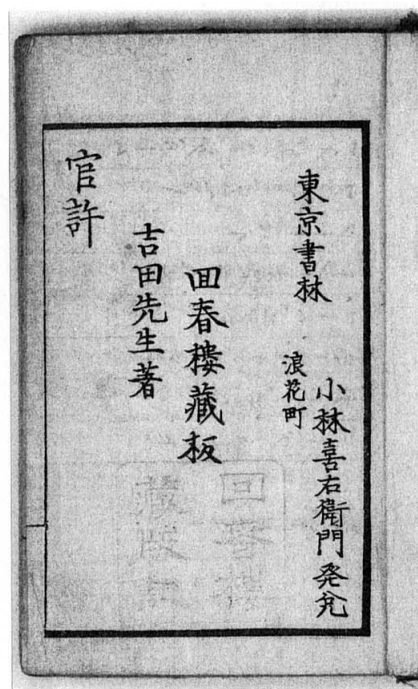 東京書林
浪花町
小林喜右衛門発兌
回春樓藏板
吉田先生著
官許